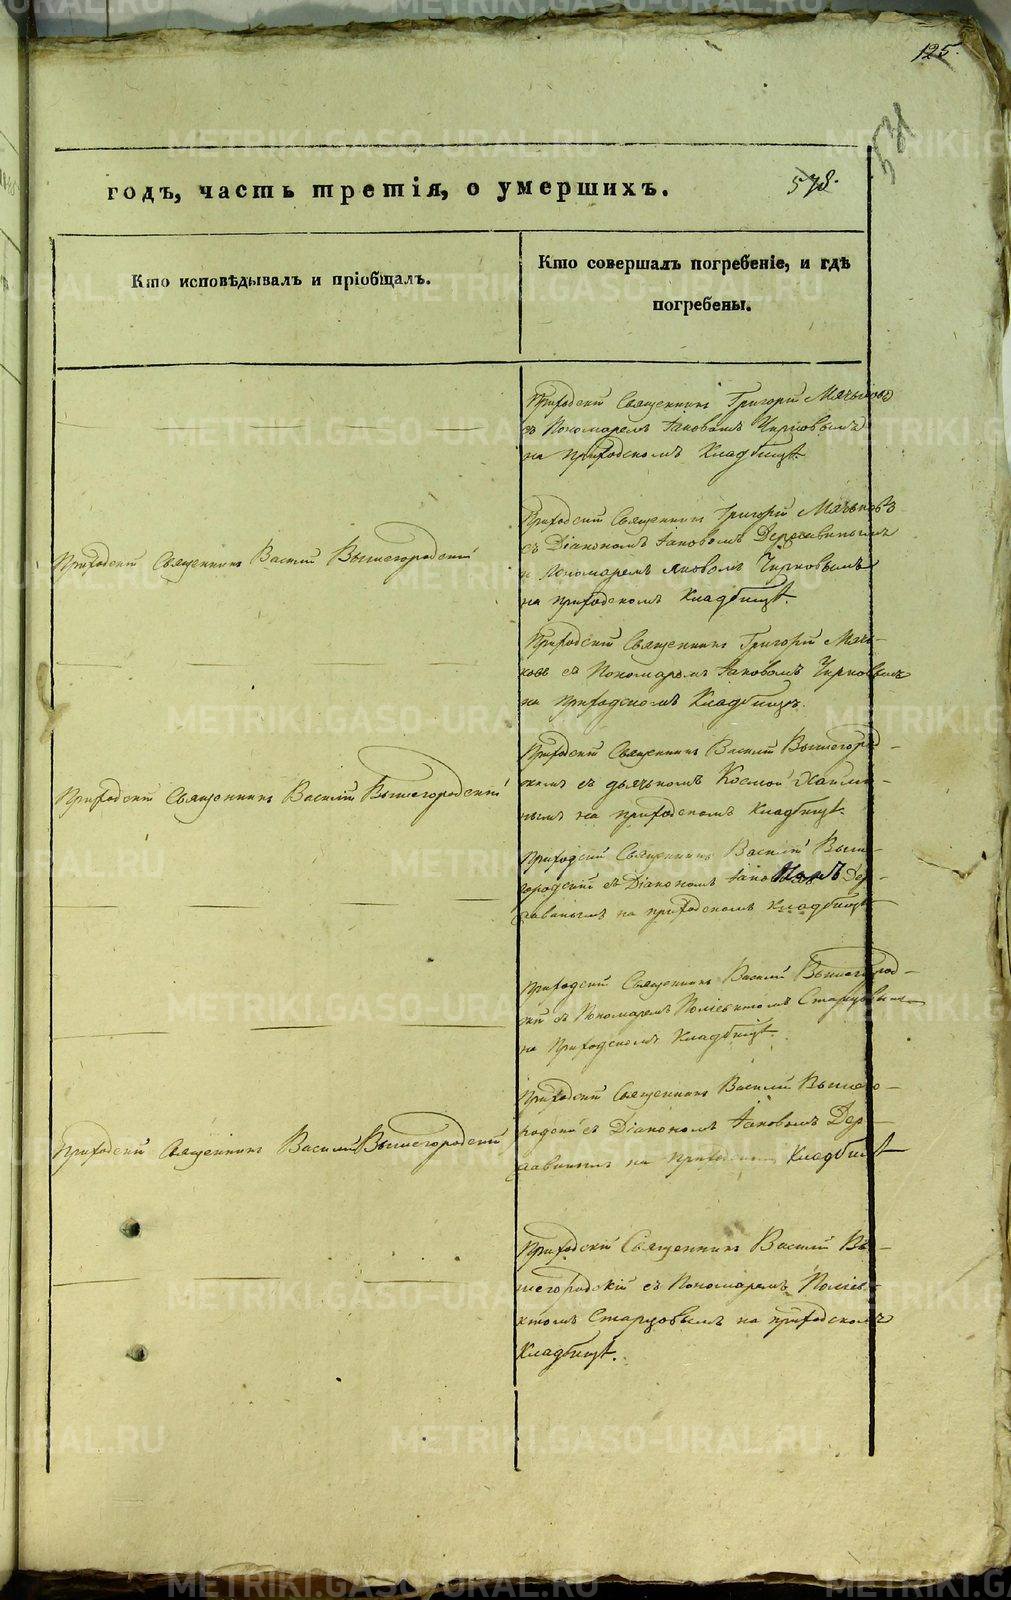 125.
531
годъ, часть третія, о умершихъ.
578.
Кто исповѣдывалъ и пріобщалъ.
Кто совершалъ погребеніе, и гдѣ
погребены.
Приходскій Священникъ Григорій Мячьковъ
съ Пономаремъ Іаковомъ Чирковымъ
на приходскомъ Кладбищѣ.
Приходскій Священникъ Василій Вышегородскій
Приходскій Священникъ Григорій Мячьковъ
съ Діакономъ Іаковомъ Державинымъ
и Пономаремъ Яковомъ Чирковымъ
на приходскомъ Кладбищѣ.
Приходскій Священникъ Григорій Мячь-
ковъ съ Пономаремъ Іаковомъ Чирковымъ
на приходскомъ Кладбищѣ.
Приходскій Священникъ Василій Вышегородскій
Приходскій Священникъ Василій Вышегород-
съ дьячькомъ Космой
нымъ на приходскомъ Кладбищѣ.
Приходскій Священникъ Василій Выше-
городскій съ Діакономъ Іаковомъ Дер-
жавинымъ на приходскомъ Кладбищѣ
Приходскій Священникъ Василій Вышегород-
скій съ Пономаремъ Поліевктомъ Старцовымъ
на Приходскомъ Кладбищѣ.
Приходскій Священникъ Василій Вышегородскій
Приходскій Священникъ Василій Вышего-
родскій съ Діакономъ Іаковомъ Дер-
жавинымъ на Приходскомъ Кладбищѣ
Приходскій Священникъ Василій Вы-
шегородскій съ Пономаремъ Поліев-
ктомъ Старцовымъ на приходскомъ
Кладбищѣ.
METRIKI.GASO-URAL.RU